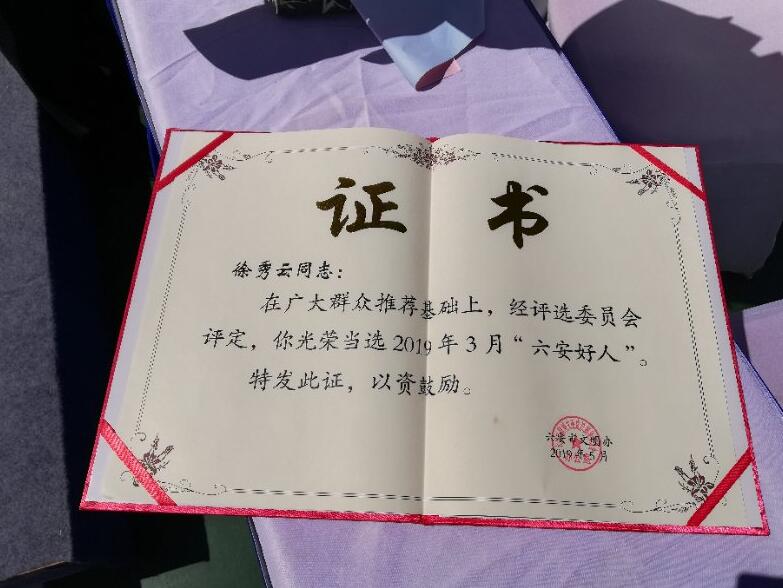 证书
徐秀云同志：
在广大群众推荐基础上，经评选委员会
评定，你光荣当选2019年3月“六安好人”。
特发此证，以资鼓励。
六安市文明办
2019年5月